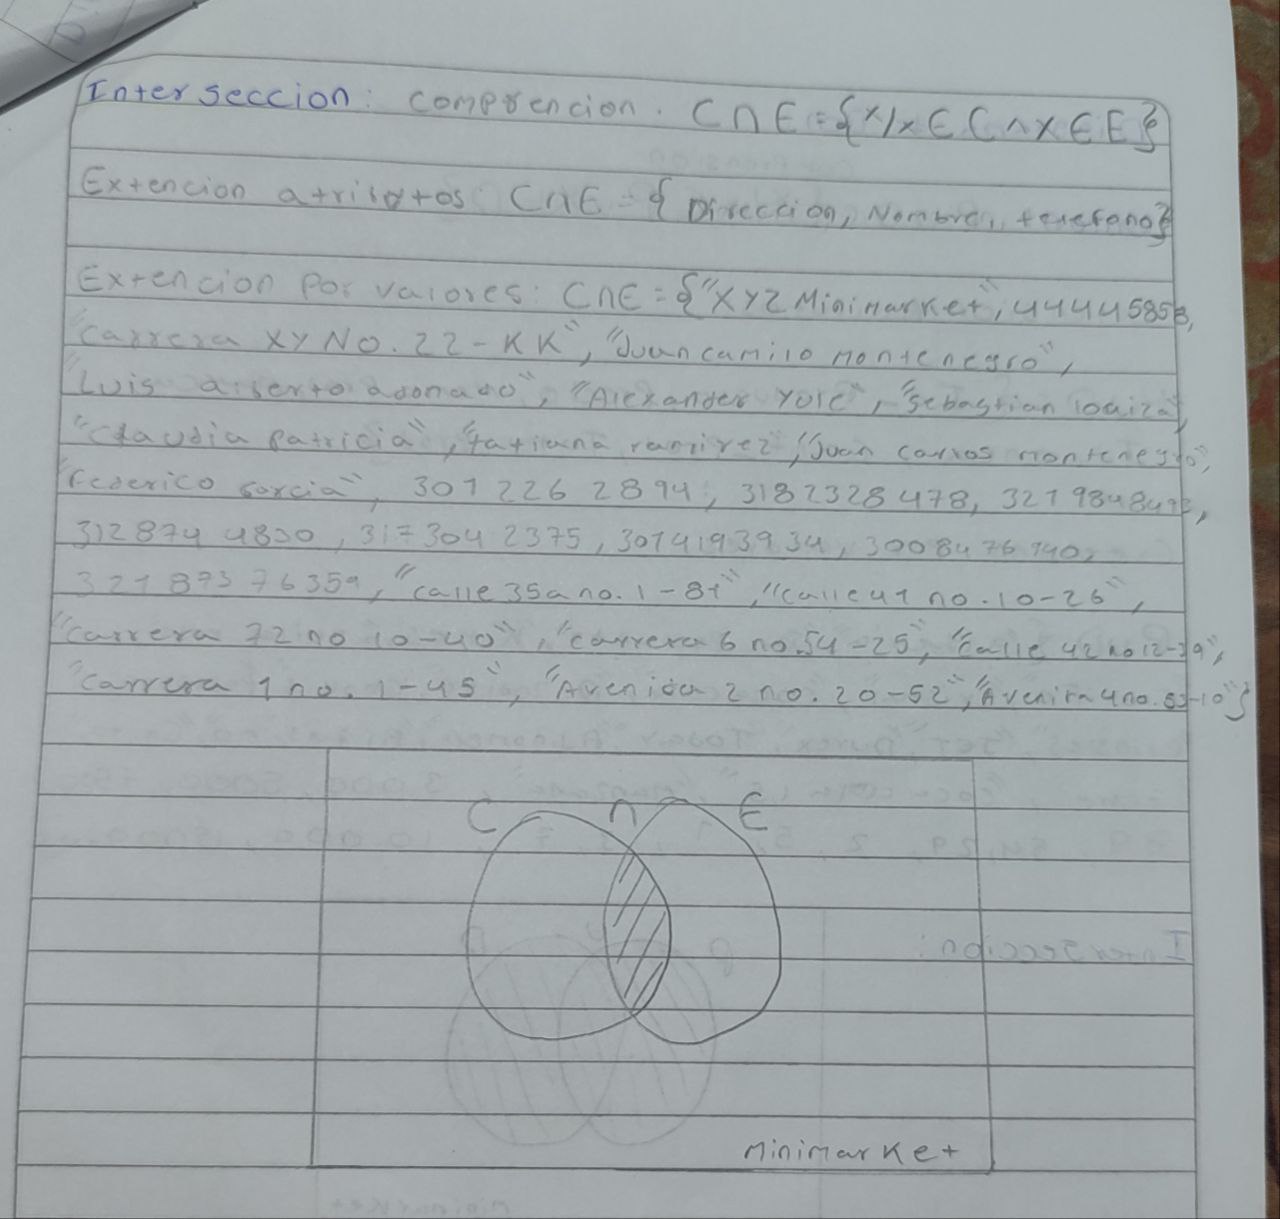 Interseccion: comprencion. C∩E={x/x∈C∧x∈E}
Extencion atributos: C∩E={Direccion, Nombre, telefono}
Extencion por valores: C∩E={"XYZ Minimarket", 444458538,
"Carrera XY No. 22-KK", "Juan camilo montenegro",
"Luis alberto adonado", "Alexander Yule", "Sebastian loaiza",
"Claudia patricia", "tatiana ramirez", "Juan carlos montenegro",
"Federico Garcia", 301 226 2894, 3182328478,
312874 4830, 317304 2375, 3014193934, 3008476140,
"calle 35a no. 1-81", "calle 41 no. 10-26",
"Carrera 72 no 10-40", "carrera 6 no.54-25", "Calle 42 no 12-39",
"carrera 1 no. 1-45", "Avenida 2 no. 20-52", "Avenida 4 no. 53-10"}
C ∩ E
Minimarket